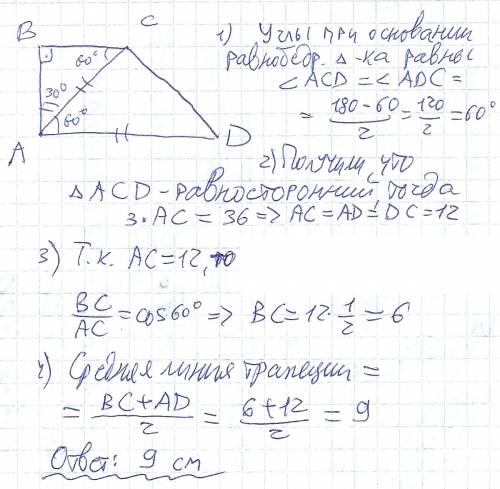 B
C
60°
30°
60°
A
D
1) Углы при основании
равнобедр. Δ-ка равны
∠ACD = ∠ADC =
= \frac{180-60}{2} = \frac{120}{2} = 60°
2) Получили, что
Δ ACD - равносторонний, тогда
3·AC = 36 => AC = AD = DC = 12
3) Т.к. AC = 12, то
\frac{BC}{AC} = cos60° => BC = 12·\frac{1}{2} = 6
4) Средняя линия трапеции =
= \frac{BC+AD}{2} = \frac{6+12}{2} = 9
Ответ: 9 см